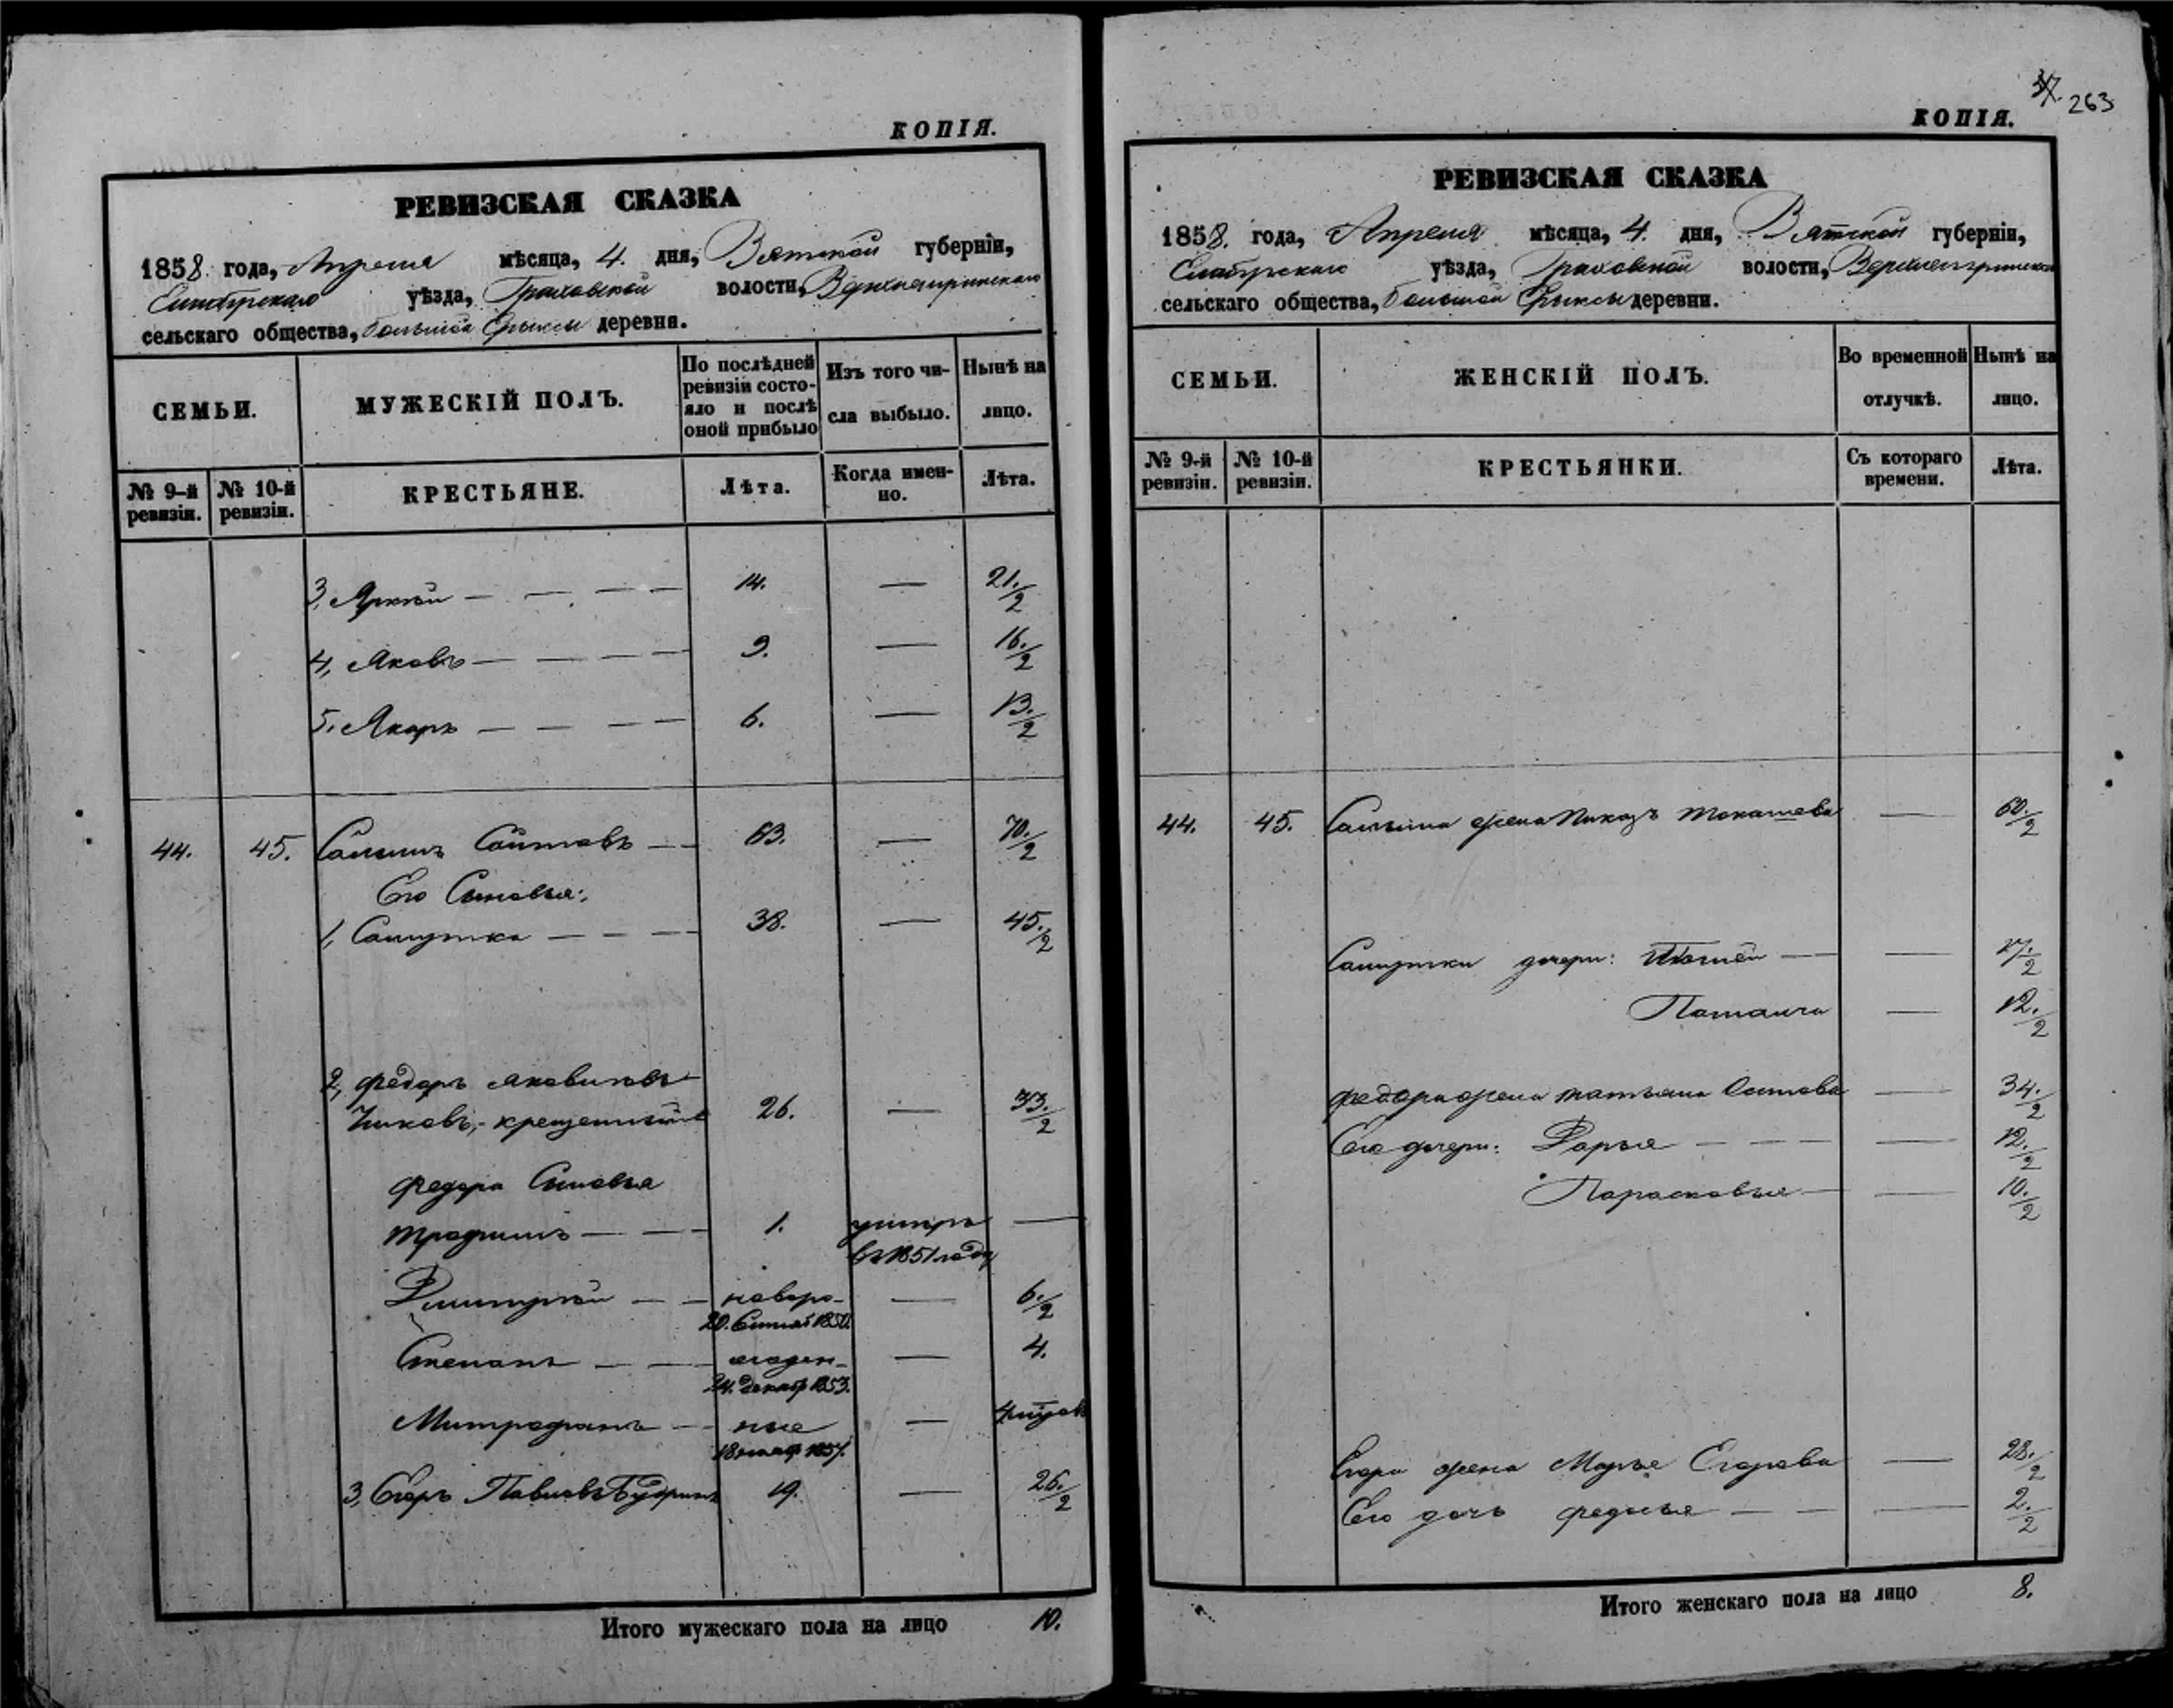 КОПІЯ.
РЕВИЗСКАЯ СКАЗКА
1858. года, Апреля мѣсяца, 4. дня, Вятской губерніи,
Елабугскаго уѣзда, Граховской волости,
сельскаго общества, Большой Ерыксы деревни.
СЕМЬИ.
МУЖЕСКІЙ ПОЛЪ.
По послѣдней ревизіи состо-
яло и послѣ оной прибыло
Изъ того чи-
сла выбыло.
Нынѣ на лицо.
№ 9-й ревизіи.
№ 10-й ревизіи.
КРЕСТЬЯНЕ.
Лѣта.
Когда имен-
но.
Лѣта.
3, 14. — 21./2
4, Яковъ — 9. — 16./2
5, Якаръ — 6. — 13./2
44. 45. Саитовъ — 63. — 70./2
Его Сыновья:
1, Самутка — 38. — 45./2
2, Федоръ Яковлевъ
Чиковъ, крещеный 26. — 33./2
Федора Сыновья
Трафимъ — 1. умеръ —
въ 1851 году
Дмитрей — новоро- — 6./2
20. 1850.
Степанъ — жден- — 4.
24. декабр 1853.
Митрафанъ — ные —
18 1857.
3, Егоръ Павловъ 19. — 26./2
Итого мужескаго пола на лицо 10.
37. 263
КОПІЯ.
РЕВИЗСКАЯ СКАЗКА
1858. года, Апреля мѣсяца, 4. дня, Вятской губерніи,
Елабугскаго уѣзда, Граховской волости,
сельскаго общества, Большой Ерыксы деревни.
СЕМЬИ.
ЖЕНСКІЙ ПОЛЪ.
Во временной отлучкѣ.
Нынѣ на лицо.
№ 9-й ревизіи.
№ 10-й ревизіи.
КРЕСТЬЯНКИ.
Съ котораго времени.
Лѣта.
44. 45. жена Токашева — 60./2
Самутки дочери: — 17./2
— 12./2
Федора жена Татьяна — 34./2
Его дочери: Дарья — 12./2
Парасковья — 10./2
Егора жена Марья Егорова — 28./2
Его дочь Федосья — 2./2
Итого женскаго пола на лицо 8.